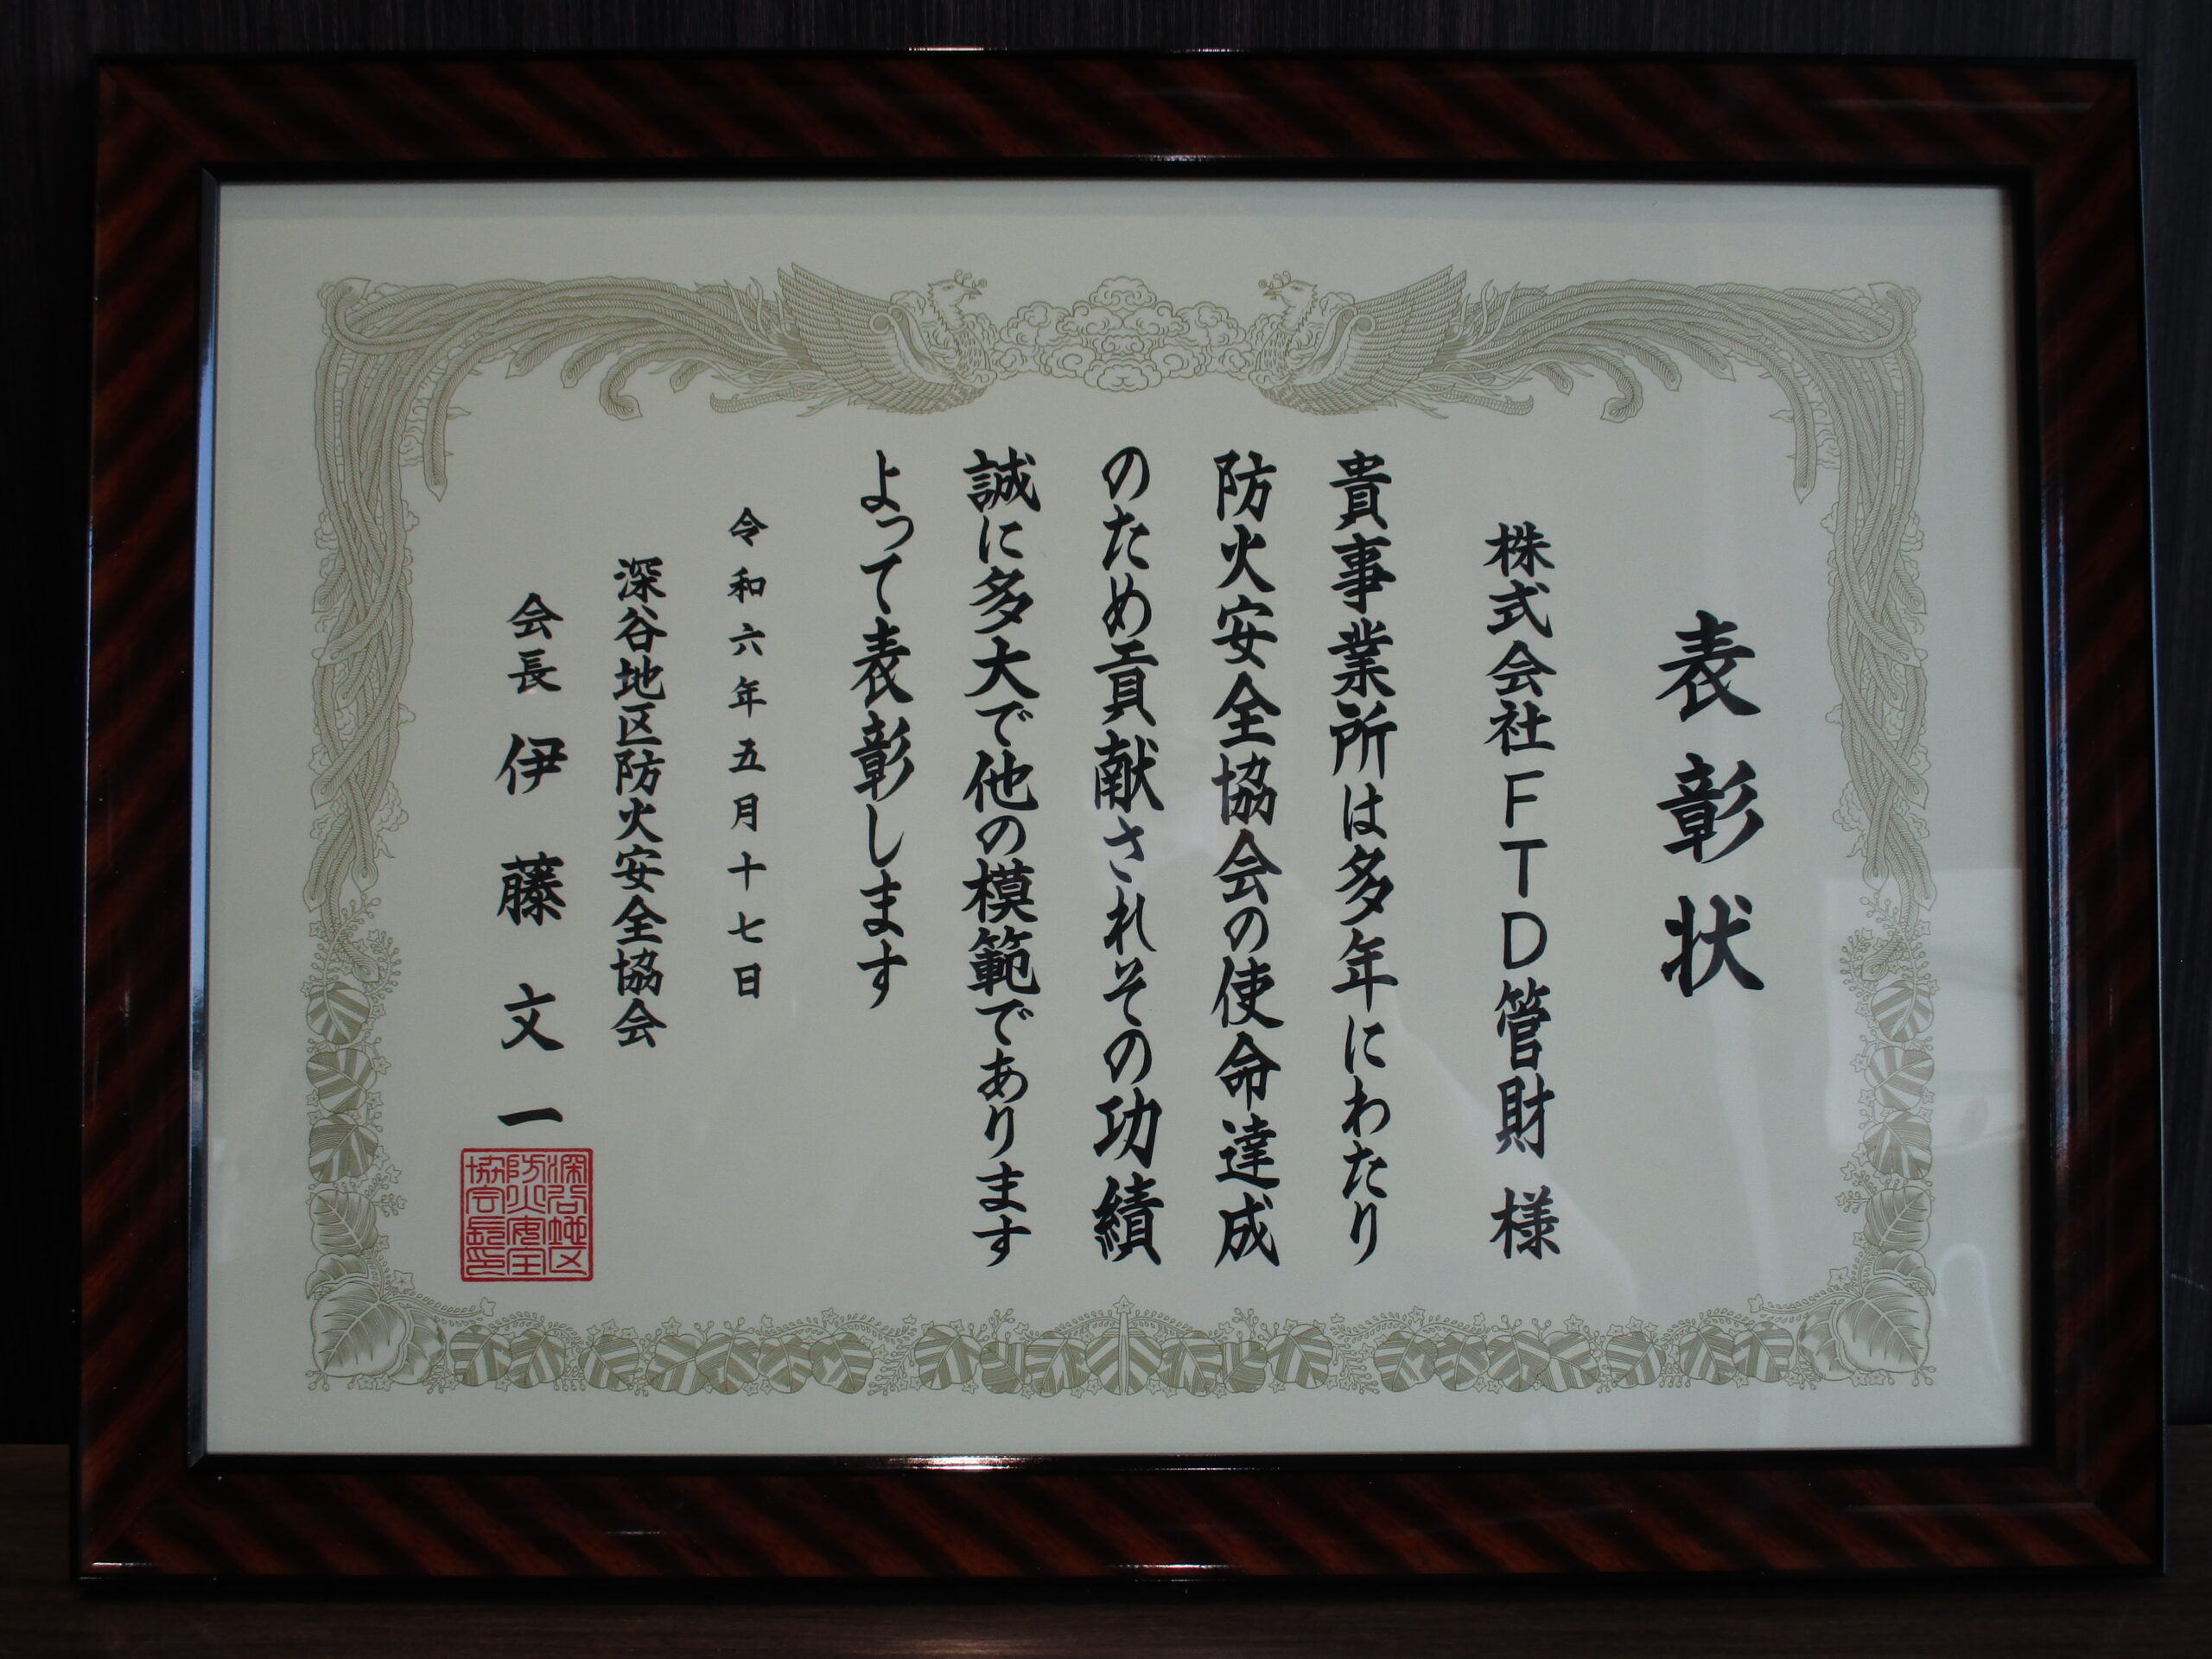 表彰状
株式会社FTD管財 様
貴事業所は多年にわたり
防火安全協会の使命達成
のため貢献されその功績
誠に多大で他の模範であります
よって表彰します
令和六年五月十七日
深谷地区防火安全協会
会長 伊藤文一
深谷地区
防火安全
協会長印